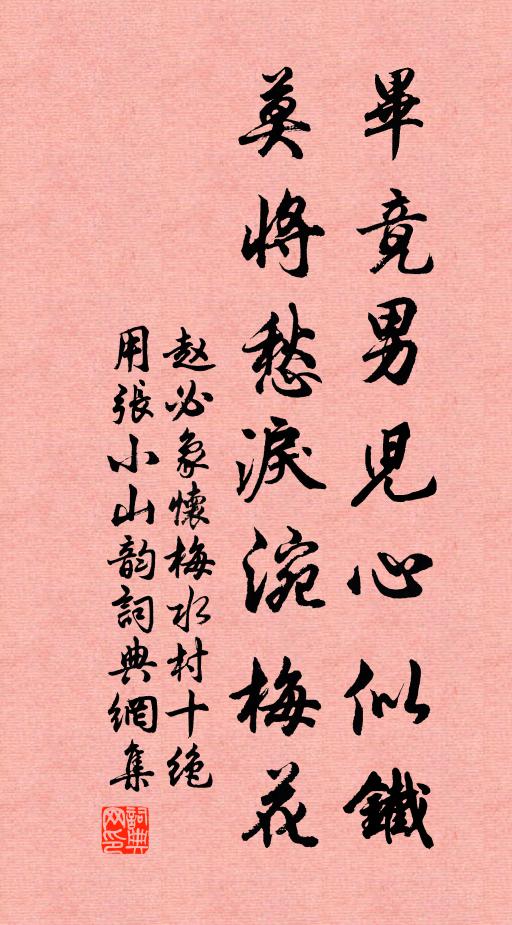 畢竟男児心似鐵
莫將愁淚涴梅花
赵必象懷梅水村十绝
用張小山韵詞典網集
詞典网印